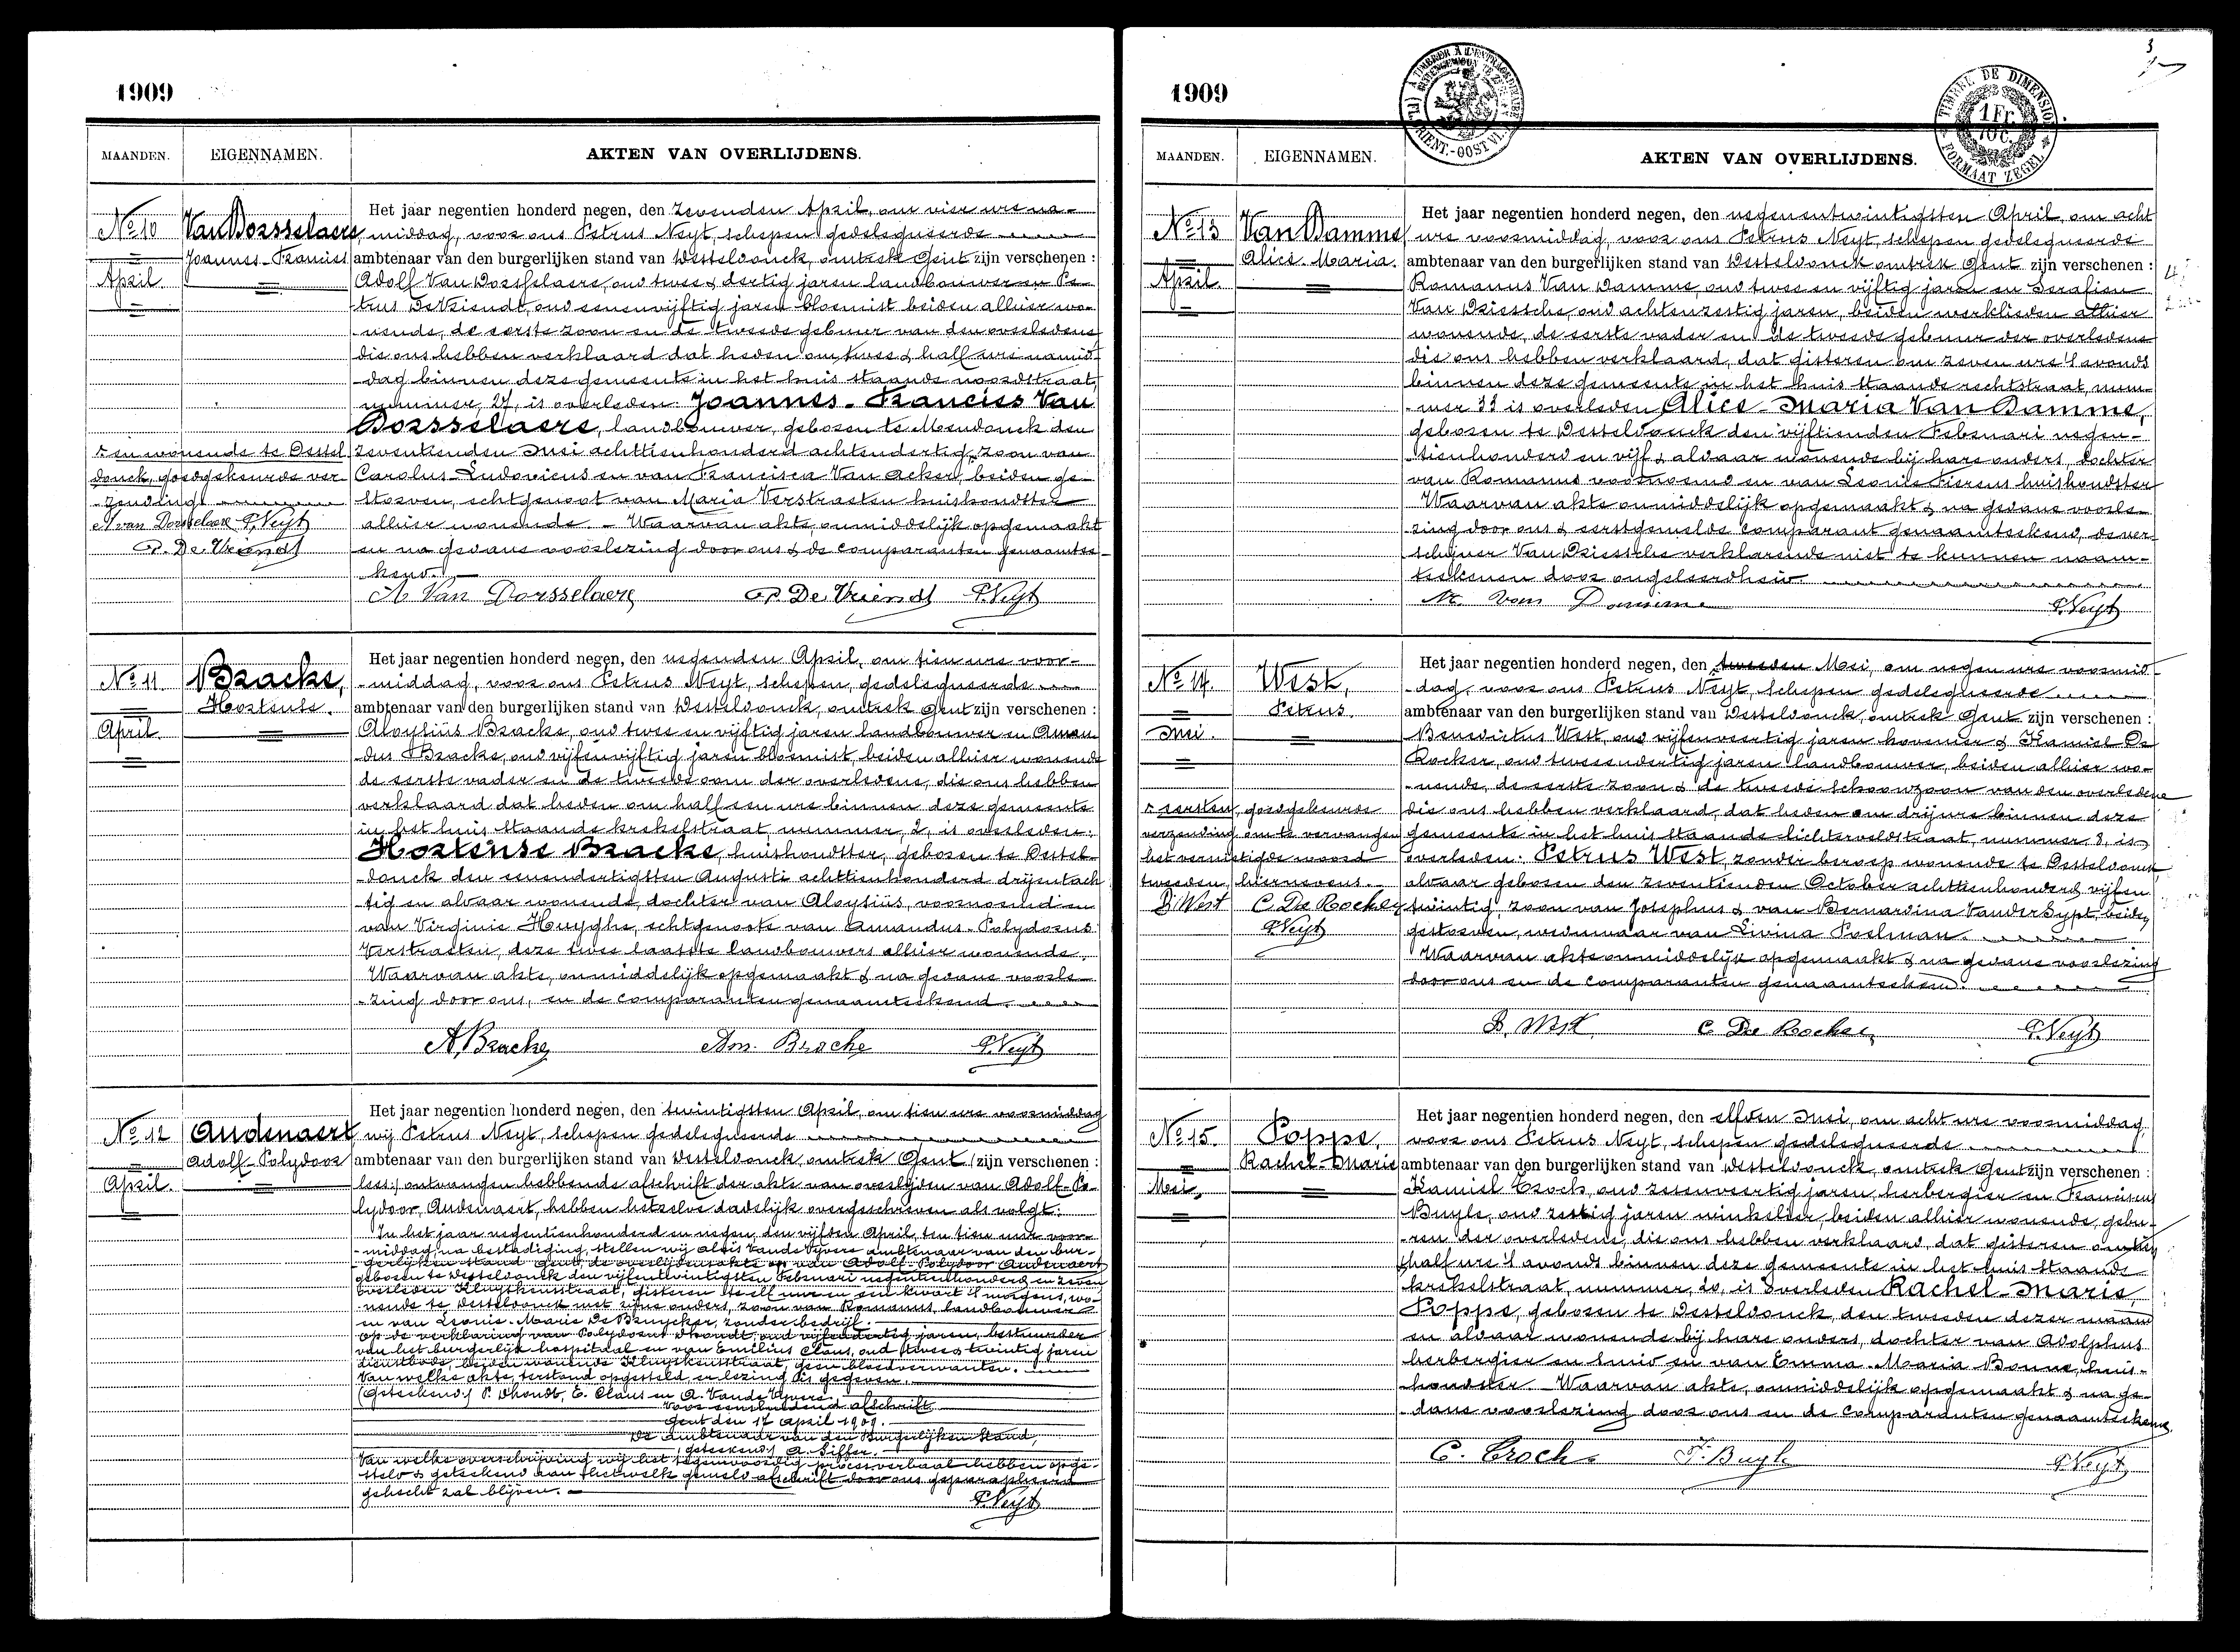 1909
MAANDEN.
EIGENNAMEN.
AKTEN VAN OVERLIJDENS.
No 10
April
VanDorsselaere,
Joannes-Franciss
Het jaar negentien honderd negen, den zevenden April, om vier ure na-
middag, voor ons Petrus Neyt, schepen gedelegueerde
ambtenaar van den burgerlijken stand van Desteldonck, omtrek Gent zijn verschenen :
Adolf Van Dorsselaere, oud twee & dertig jaren landbouwer en Pe-
trus DeVriendt, oud eenenvijftig jaren bloemist beiden alhier wo-
nende, de eerste zoon en de tweede gebuur van den overledene
die ons hebben verklaard dat heden om twee & half ure namid-
dag binnen deze gemeente in het huis staande noordstraat,
nummer, 27, is overleden: Joannes-Franciss Van
Dorsselaere, landbouwer, geboren te Mendonck den
zeventienden Juni achttienhonderd achtendertig, zoon van
Carolus-Ludovicus en van Francisca Van Acker, beiden ge-
storven, echtgenoot van Maria Verstraeten huishoudster
alhier wonende. - Waarvan akte, onmiddelijk opgemaakt
en na gedane voorlezing door ons & de comparanten genaamtee-
kend.
en wonende te Destel
donck, goedgekeurde ver-
zending
A van Dorsselaere P. Neyt
P. De Vriendt
A Van Dorsselaere P. De Vriendt P. Neyt
No 11
April
Bracke,
Hortense.
Het jaar negentien honderd negen, den negenden April, om tien ure voor-
middag, voor ons Petrus Neyt, schepen, gedelegueerde
ambtenaar van den burgerlijken stand van Desteldonck, omtrek Gent zijn verschenen :
Aloysiüs Bracke, oud twee en vijftig jaren landbouwer en Aman-
dus Bracke, oud vijfenvijftig jaren bloemist, beiden alhier wonende
de eerste vader en de tweede oom der overledene, die ons hebben
verklaard dat heden om half een ure binnen deze gemeente
in het huis staande krekelstraat, nummer, 2, is overleden:
Hortense Bracke, huishoudster, geboren te Destel-
donck den eenendertigsten Augusti achttienhonderd drijentach
tig en aldaar wonende, dochter van Aloysiüs, voornoemd en
van Virginie Huyghe, echtgenoote van Amandus-Polydorus
Verstraeten, deze twee laatste landbouwers alhier wonende.
Waarvan akte, onmiddelijk opgemaakt & na gedane voorle-
zing door ons, en de comparanten genaamteekend.
A. Bracke Am. Bracke P. Neyt
No 12
April.
Audenaert
Adolf-Polydoor
Het jaar negentien honderd negen, den twintigsten April, om tien ure voormiddag
wij Petrus Neyt, schepen gedelegueerde
ambtenaar van den burgerlijken stand van Desteldonck, omtrek Gent (zijn verschenen :
lees:) ontvangen hebbende afschrift der akte van overlijden van Adolf-Po-
lydoor, Audenaert, hebben hetzelve dadelijk overgeschreven als volgt:
In het jaar negentienhonderd en negen, den vijfden April, ten tien ure voor-
middag, na bestadiging, stellen wij Aloïs Vande Vyvere ambtenaar van den bur-
gerlijken stand Gent, de overlijdensakte op van Adolf-Polydoor Audenaert
geboren te Desteldonck den vijfentwintigsten Februari negentienhonderd en zeven
overleden Kluyskensstraat, gisteren te elf ure en een kwart 's morgens, wo-
nende te Desteldonck met zijne ouders, zoon van Romanus, landbouwer
en van Leonie-Marie De Bruycker, zonder bedrijf.
Op de verklaring van Polydoor Dhondt, oud vijfendertig jaren, bestuurder
van het burgerlijk hospitaal en van Emilius Claus, oud twee & twintig jaren
dienstbode, beiden wonende Kluyskensstraat, geen bloedverwanten.
Van welke akte, terstond opgesteld, en lezing is gegeven.
(Geteekend) P. Dhondt, E. Claus en A. Vande Vyvere
Voor eensluidend afschrift
Gent den 17 April 1909.
De Ambtenaar van den Burgerlijken Stand,
(geteekend) A. Siffer.
Van welke overschrijving wij het tegenwoordig procesverbaal hebben opge-
steld & geteekend aan hetwelk gemeld afschrift door ons geparapheerd
gehecht zal blijven.
P. Neyt
3
1909
TIMBRE DE DIMENSION
1 Fr.
10 C.
FORMAAT ZEGEL
MAANDEN.
EIGENNAMEN.
AKTEN VAN OVERLIJDENS.
No 13
April
VanDamme
Alice-Maria.
Het jaar negentien honderd negen, den negenentwintigsten April, om acht
ure voormiddag, voor ons Petrus Neyt, schepen gedelegueerde
ambtenaar van den burgerlijken stand van Desteldonck omtrek Gent zijn verschenen :
Romanus Van Damme, oud twee en vijftig jaren en Serafien
Van Driessche, oud achtenzestig jaren, beiden werklieden alhier
wonende, de eerste vader en de tweede gebuur der overledene
die ons hebben verklaard, dat gisteren om zeven ure 's avonds
binnen deze gemeente in het huis staande rechtstraat, num-
mer 33 is overleden Alice-Maria Van Damme,
geboren te Desteldonck den vijftienden Februari negen-
tienhonderd en vijf & aldaar wonende bij hare ouders, dochter
van Romanus voornoemd en van Leonie Fierens huishoudster
Waarvan akte onmiddelijk opgemaakt & na gedane voorle-
zing door ons & eerstgemelde comparant genaamteekend, de ver-
schijner Van Driessche verklarende niet te kunnen naam-
teekenen door ongeleerdheid.
R. Van Damme P. Neyt
No 14.
Mei.
West,
Petrus.
Het jaar negentien honderd negen, den tweeden Mei, om negen ure voormid-
dag, voor ons Petrus Neyt, schepen gedelegueerde
ambtenaar van den burgerlijken stand van Desteldonck, omtrek Gent zijn verschenen :
Benedictus West, oud vijfenveertig jaren hovenier & Kamiel De
Rocker, oud tweeendertig jaren landbouwer, beiden alhier wo-
nende, de eerste zoon & de tweede schoonzoon van den overledene
die ons hebben verklaard, dat heden om drij ure binnen deze
gemeente in het huis staande lichterveldstraat, nummer 8, is
overleden: Petrus West, zonder beroep wonende te Desteldonck
aldaar geboren den zeventienden October achttienhonderd vijfen
twintig, zoon van Josephus & van Bernardina VanderSypt, beiden
gestorven, weduwnaar van Livina Poelman.
Waarvan akte onmiddelijk opgemaakt & na gedane voorlezing
door ons en de comparanten genaamteekend.
eersten, goedgekeurde
verzending om te vervangen
het vernietigde woord
tweeden, hiernevens.
B. West C. De Rocker
P. Neyt
B. West C. De Rocker P. Neyt
No 15.
Mei,
Poppe,
Rachel-Marie
Het jaar negentien honderd negen, den elfden Mei, om acht ure voormiddag
voor ons Petrus Neyt, schepen gedelegueerde
ambtenaar van den burgerlijken stand van Desteldonck, omtrek Gent zijn verschenen :
Kamiel Croch, oud zesenveertig jaren, herbergier en Franciscus
Buyle, oud zestig jaren winkelier, beiden alhier wonende, gebu-
ren der overledene, die ons hebben verklaard, dat gisteren om
half ure 's avonds binnen deze gemeente in het huis staande
krekelstraat, nummer, 20, is overleden Rachel-Marie
Poppe, geboren te Desteldonck, den tweeden dezer maand
en aldaar wonende bij hare ouders, dochter van Adolphus
herbergier en smid en van Emma-Maria Bonne, huis-
houdster. Waarvan akte, onmiddelijk opgemaakt & na ge-
dane voorlezing door ons en de comparanten genaamteekend.
C. Croch F. Buyle P. Neyt